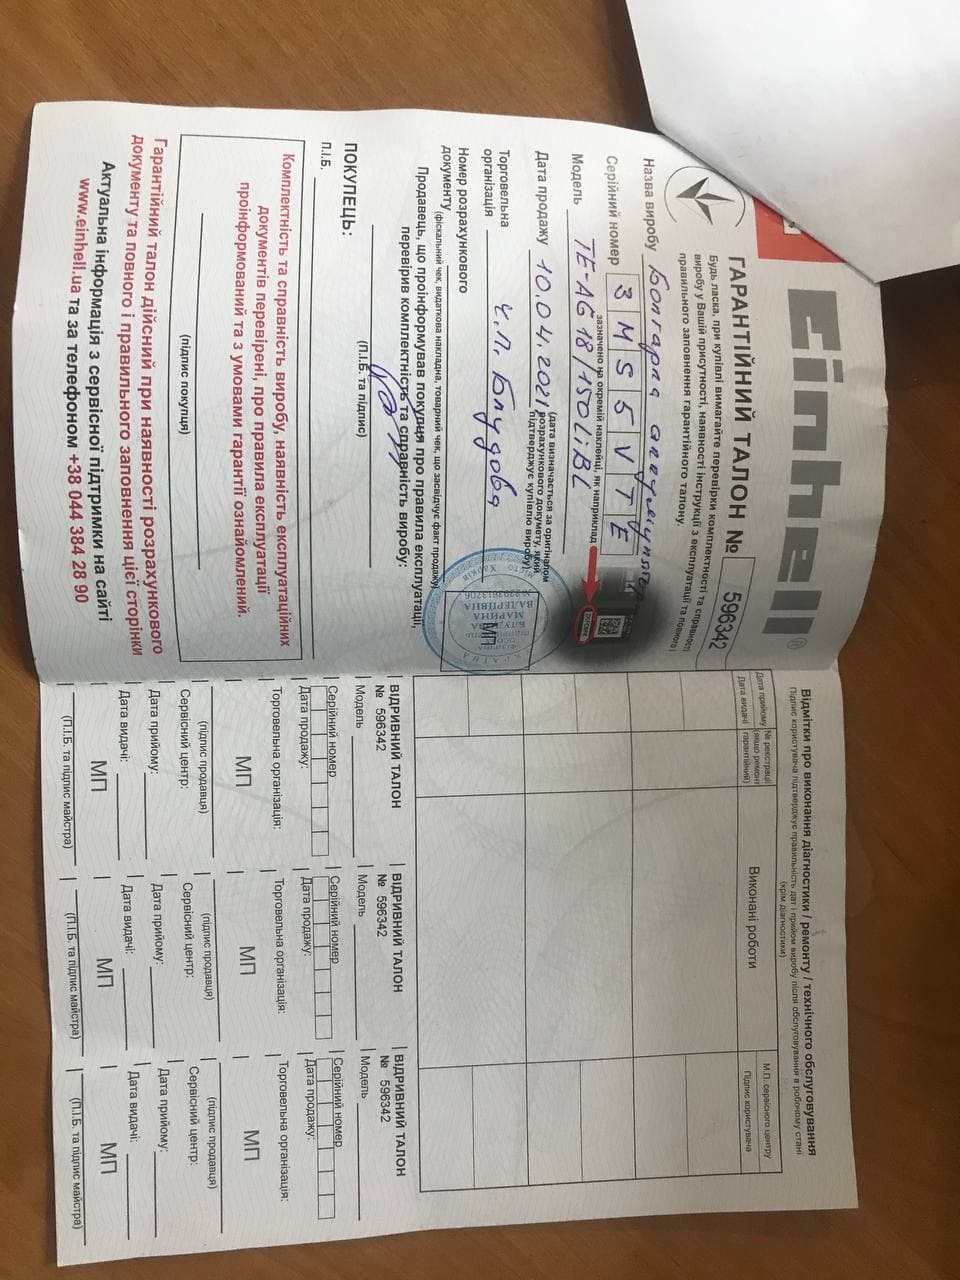 einhell
ГАРАНТІЙНИЙ ТАЛОН № 596342
Будь ласка, при купівлі вимагайте перевірки комплектності та справності
виробу у Вашій присутності, наявності інструкції з експлуатації та повного і
правильного заповнення гарантійного талону.
Назва виробу Болгарка аккумулятор
Серійний номер 3 M S 5 V T E
зазначено на окремій наклейці, як наприклад
Модель TE-AG 18/150 Li BL
Дата продажу 10.04.2021
(дата визначається за оригіналом
розрахункового документу, який
підтверджує купівлю виробу)
Торговельна
організація Ч.П. Блудова
МП
Номер розрахункового
документу (фіскальний чек, видаткова накладна, товарний чек, що засвідчує факт продажу)
Продавець, що проінформував покупця про правила експлуатації,
перевірив комплектність та справність виробу:
(П.І.Б. та підпис)
ПОКУПЕЦЬ:
П.І.Б.
Комплектність та справність виробу, наявність експлуатаційних
документів перевірені, про правила експлуатації
проінформований та з умовами гарантії ознайомлений.
(підпис покупця)
Гарантійний талон дійсний при наявності розрахункового
документу та повного і правильного заповнення цієї сторінки
Актуальна інформація з сервісної підтримки на сайті
www.einhell.ua та за телефоном +38 044 384 28 90
місто Харків
УКРАЇНА
БЛУДОВА
МАРИНА
ВАЛЕРІЇВНА
Відмітки про виконання діагностики / ремонту / технічного обслуговування
Підпис користувача підтверджує правильність дат і прийом виробу після обслуговування в робочому стані
(крім діагностики)
Дата прийому
Дата видачі
№ реєстрації
(якщо ремонт
гарантійний)
Виконані роботи
М.П. сервісного центру
Підпис користувача
ВІДРИВНИЙ ТАЛОН
№ 596342
Модель
Серійний номер
Дата продажу:
Торговельна організація:
МП
(підпис продавця)
Сервісний центр:
Дата прийому:
Дата видачі:
МП
(П.І.Б. та підпис майстра)
ВІДРИВНИЙ ТАЛОН
№ 596342
Модель
Серійний номер
Дата продажу:
Торговельна організація:
МП
(підпис продавця)
Сервісний центр:
Дата прийому:
Дата видачі:
МП
(П.І.Б. та підпис майстра)
ВІДРИВНИЙ ТАЛОН
№ 596342
Модель
Серійний номер
Дата продажу:
Торговельна організація:
МП
(підпис продавця)
Сервісний центр:
Дата прийому:
Дата видачі:
МП
(П.І.Б. та підпис майстра)